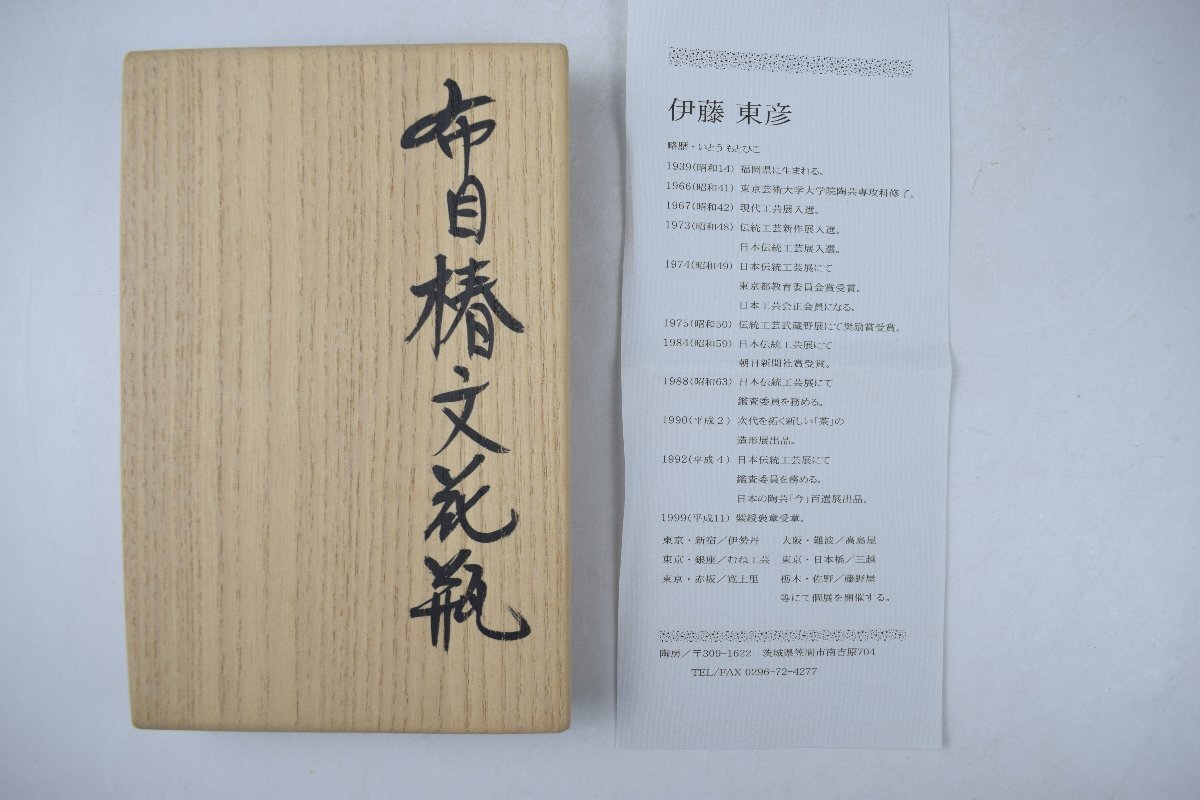 布目椿文花瓶
伊藤 東彦
略歴・いとう もとひこ
1939(昭和14) 福岡県に生まれる。
1966(昭和41) 東京芸術大学大学院陶芸専攻科修了。
1967(昭和42) 現代工芸展入選。
1973(昭和48) 伝統工芸新作展入選。
日本伝統工芸展入選。
1974(昭和49) 日本伝統工芸展にて
東京都教育委員会賞受賞。
日本工芸会正会員になる。
1975(昭和50) 伝統工芸武蔵野展にて奨励賞受賞。
1984(昭和59) 日本伝統工芸展にて
朝日新聞社賞受賞。
1988(昭和63) 日本伝統工芸展にて
鑑査委員を務める。
1990(平成2) 次代を拓く新しい「茶」の
造形展出品。
1992(平成4) 日本伝統工芸展にて
鑑査委員を務める。
日本の陶芸「今」百選展出品。
1999(平成11) 紫綬褒章受章。
東京・新宿/伊勢丹 大阪・難波/高島屋
東京・銀座/むね工芸 東京・日本橋/三越
東京・赤坂/寛土里 栃木・佐野/藤野屋
等にて個展を開催する。
陶房/〒309-1622 茨城県笠間市南吉原704
TEL/FAX 0296-72-4277